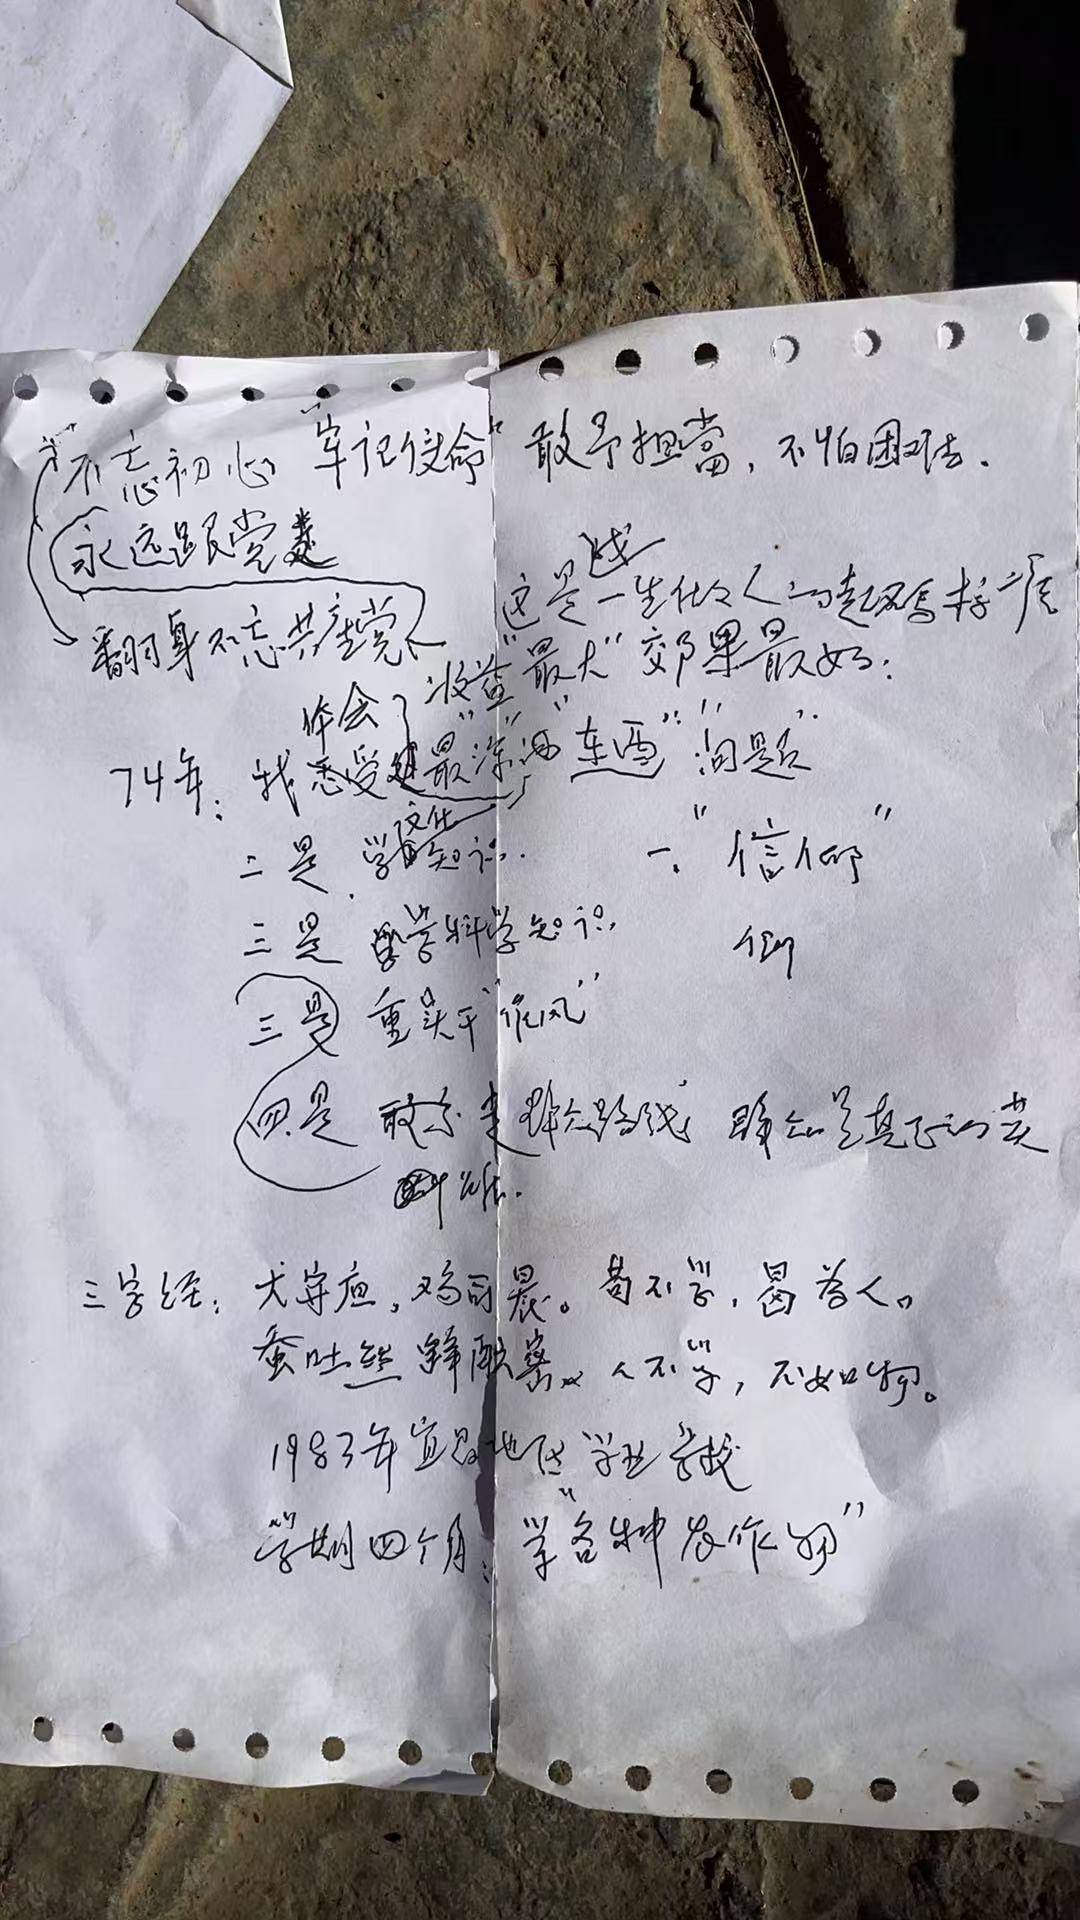 "不忘初心 "牢记使命" 敢于担當，不怕困难．
永远跟党走
我
这是一生仕人的起写
翻身不忘共产党人
收益"最大"效果最好：
体会
74年：我悉受最"深"的"东西" "问题"
一、"信仰"
文化
二是．学知识．
三是 学科学知识．
仰
三是 重实干"作风"
四是 敢于走群众路线 群众是真正的英
三字经：犬守夜，鸡司晨。苟不学，曷为人。
蚕吐丝 蜂酿蜜。人不学，不如物。
1983年宜昌地区学业学校
学期四个月：学"各种农作物"